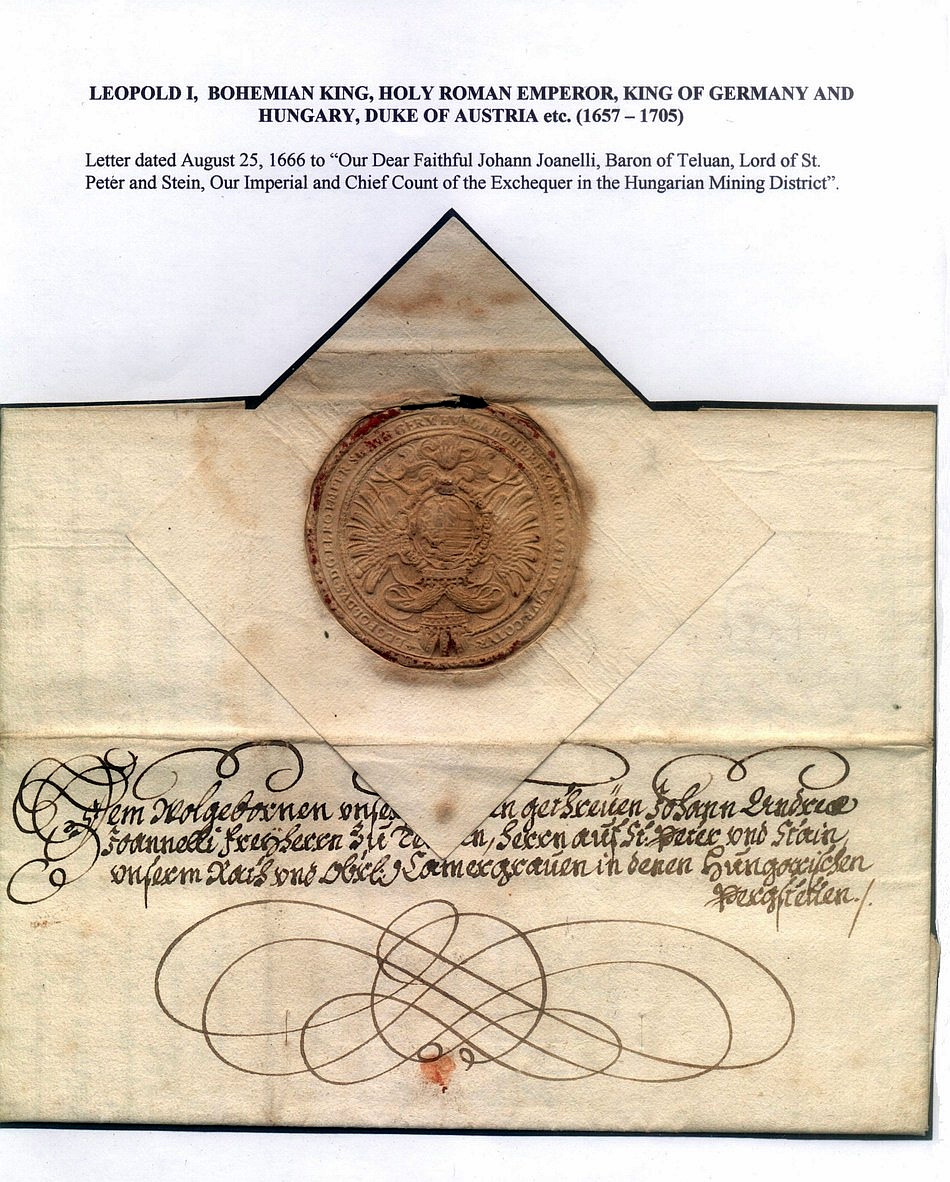 LEOPOLD I, BOHEMIAN KING, HOLY ROMAN EMPEROR, KING OF GERMANY AND
HUNGARY, DUKE OF AUSTRIA etc. (1657 – 1705)
Letter dated August 25, 1666 to “Our Dear Faithful Johann Joanelli, Baron of Teluan, Lord of St.
Peter and Stein, Our Imperial and Chief Count of the Exchequer in the Hungarian Mining District”.
Dem Wolgebornen vnse n gethreüen Johann Andreæ
Joannelli Freÿherrn zu Te n, herrn auf St. Peter vnd Stain,
vnserm Rath vnd Obrist Camergrauen in denen Hungarischen
Pergstetten./.